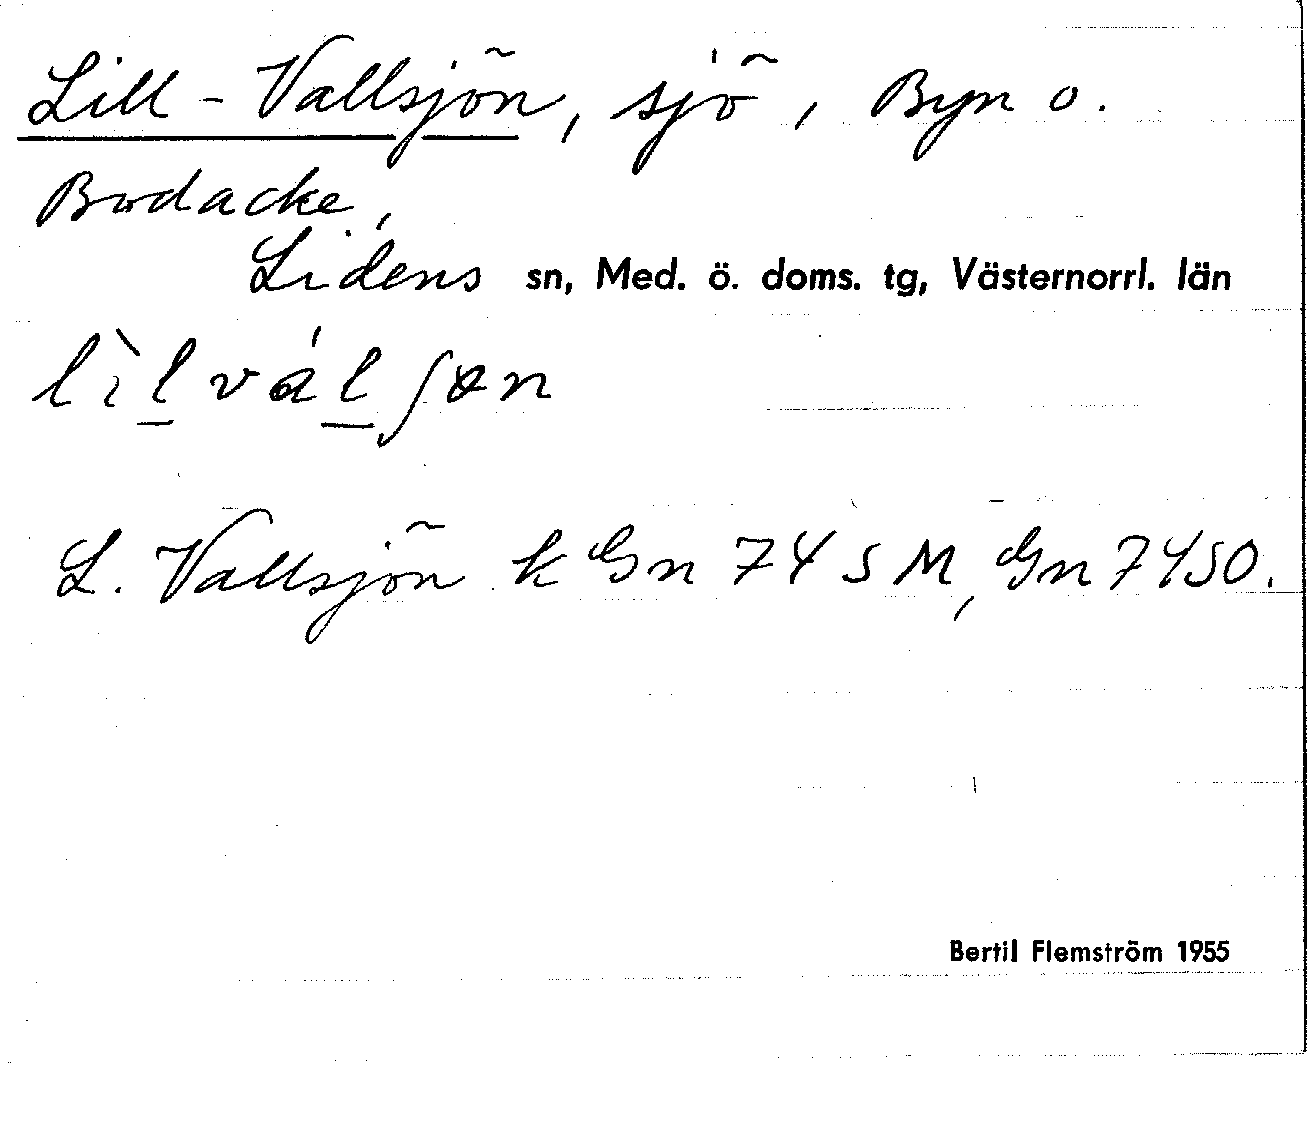 Lill-Vallsjön, sjö, Byn o.
Bodacke,
Lidens sn, Med. ö. doms. tg, Västernorrl. län
lìl̲vál̲ʃøn
L. Vallsjön k Gn 74 S M, Gn 74 SO.
Bertil Flemström 1955